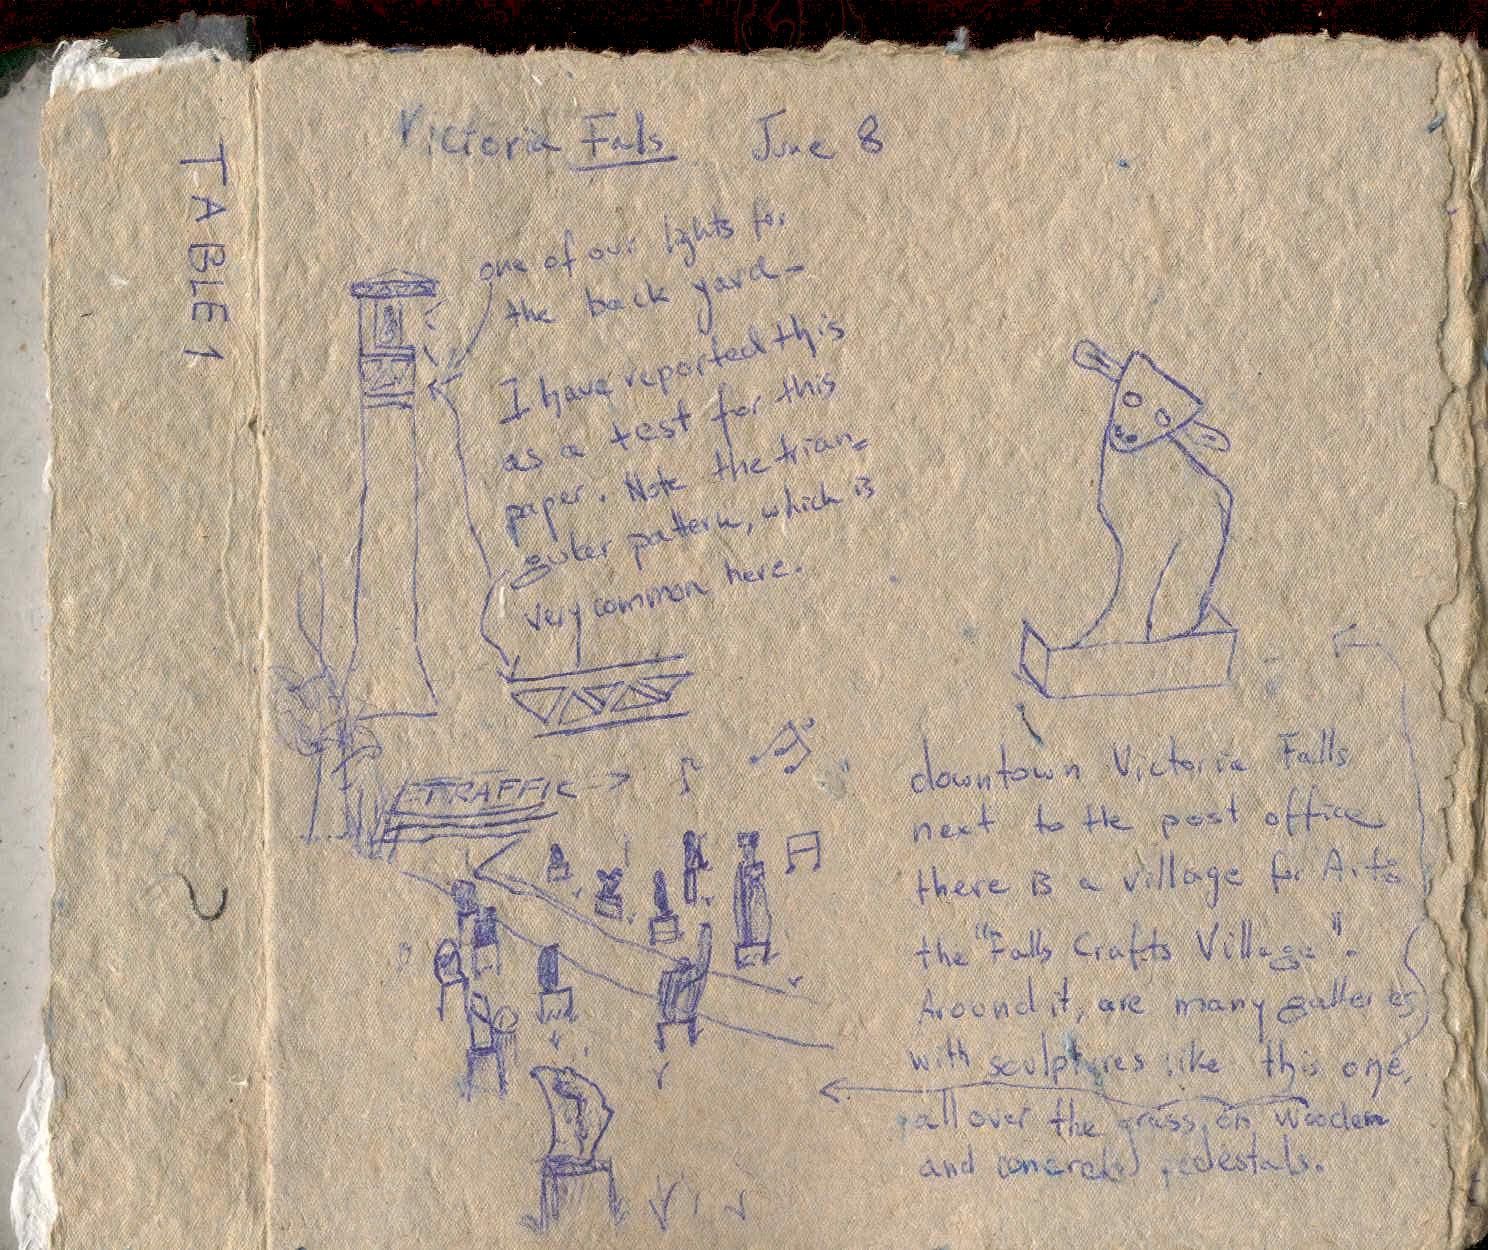 Victoria Falls June 8
TABLE 1
one of our lights for
the back yard-
I have reported this
as a test for this
paper. Note the trian=
guler pattern, which is
very common here.
TRAFFIC
downtown Victoria Falls
next to the post office
there is a village for Arts
the "Falls Crafts Village".
Around it, are many galleries
with sculptures like this one,
all over the grass, on wooden
and concrete pedestals.